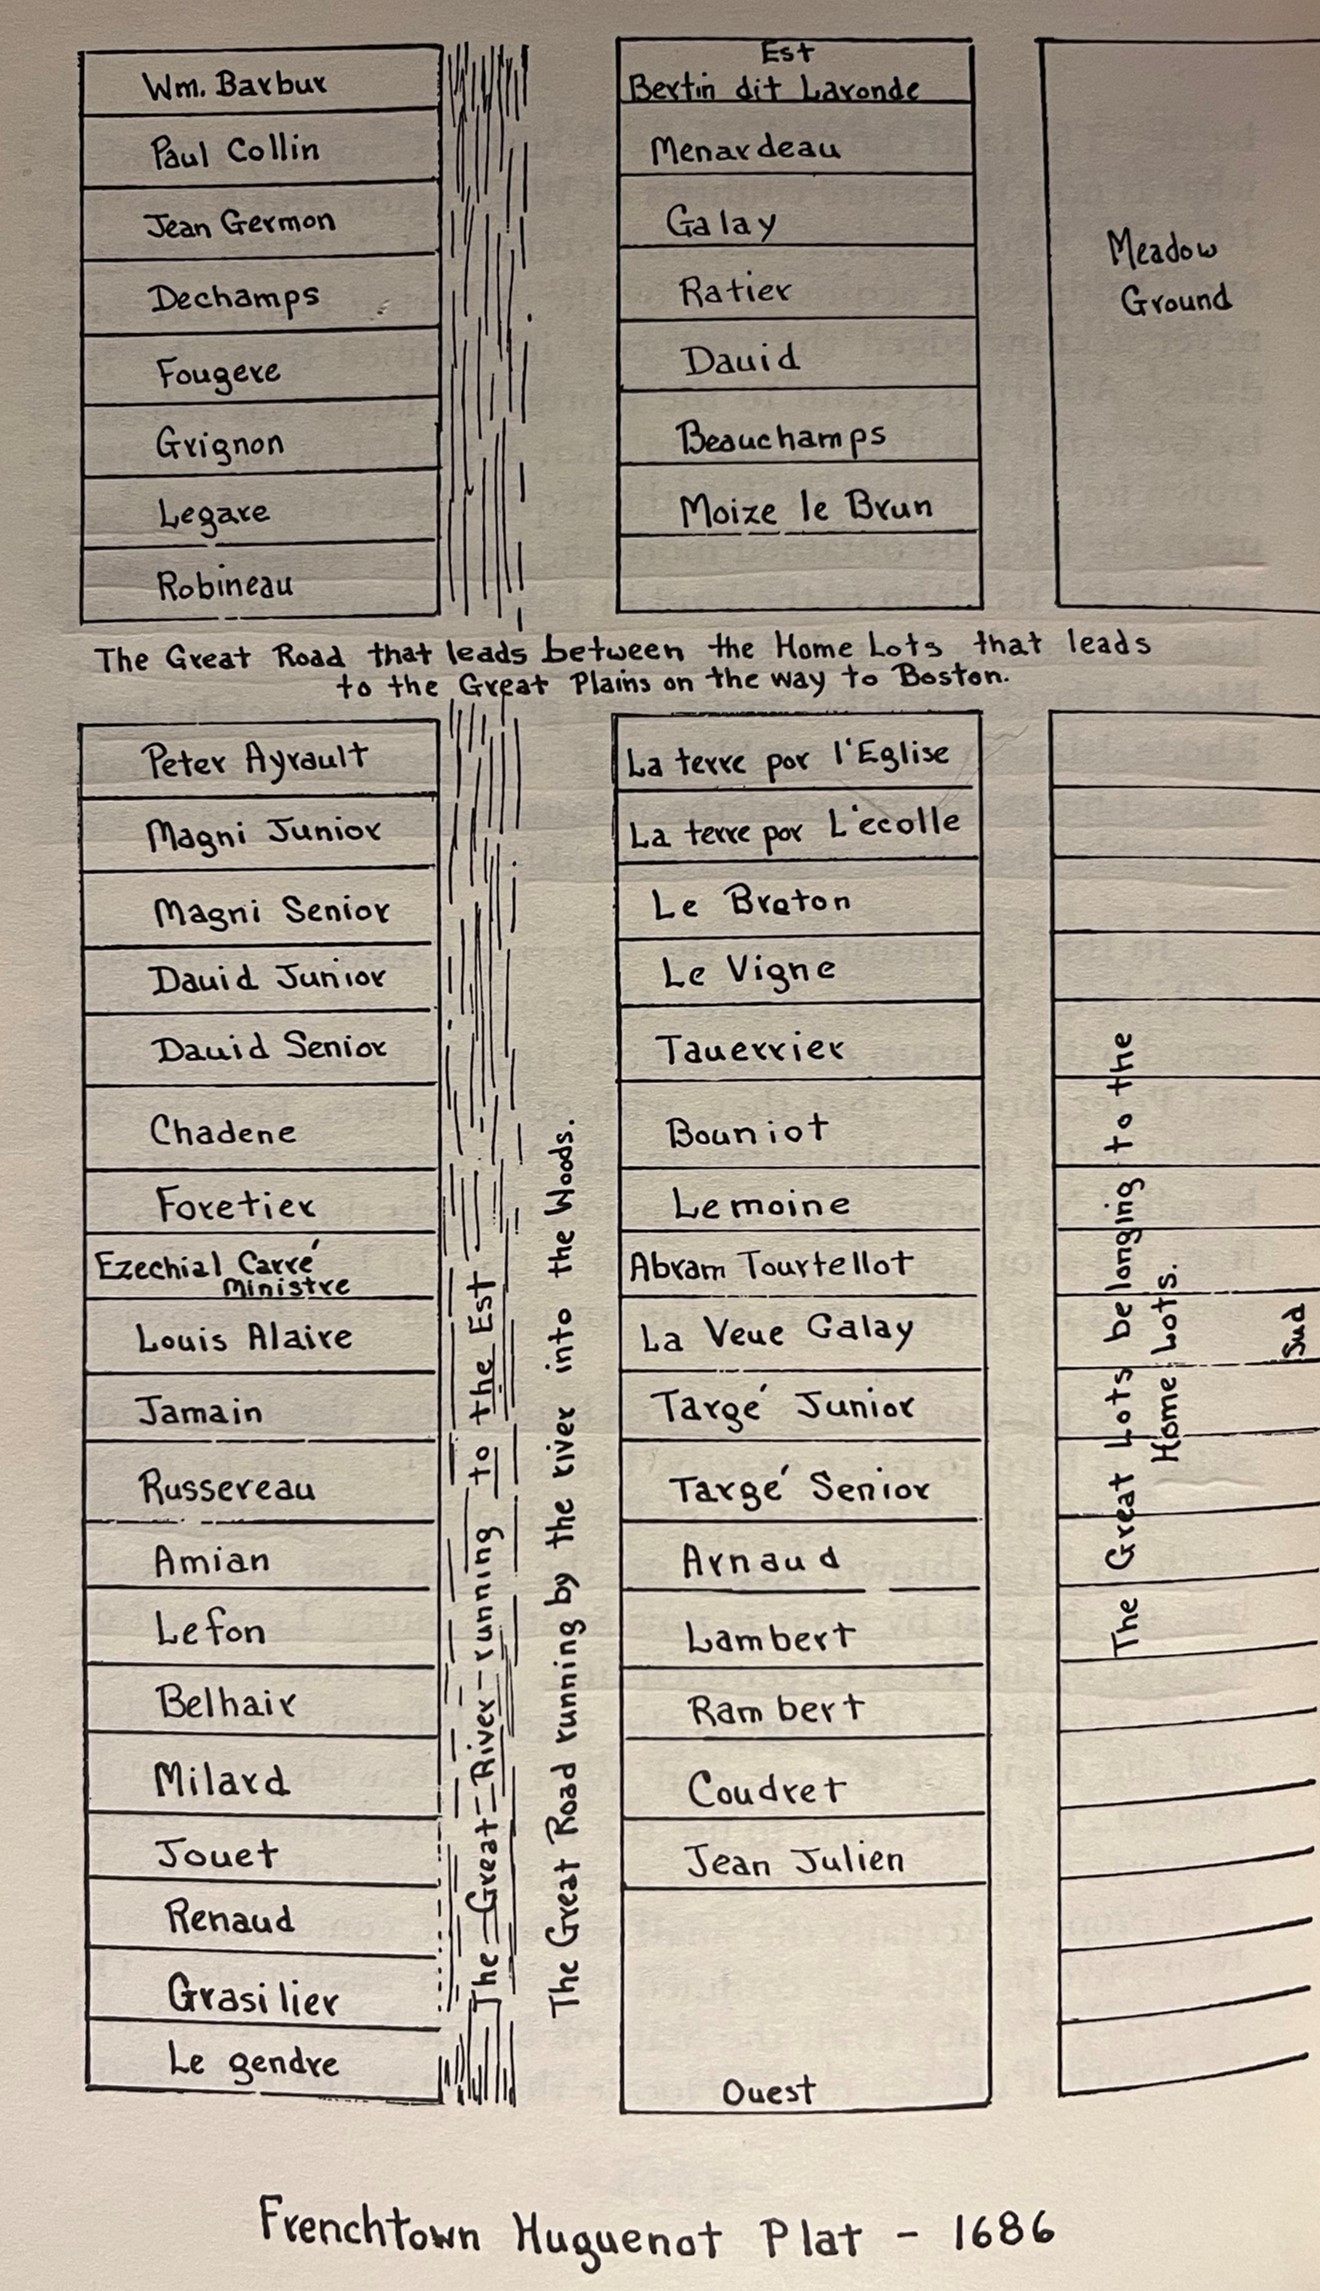 Wm. Barbur
Paul Collin
Jean Germon
Dechamps
Fougere
Grignon
Legare
Robineau
Est
Bertin dit Laronde
Menardeau
Galay
Ratier
Dauid
Beauchamps
Moize le Brun
Meadow
Ground
The Great Road that leads between the Home Lots that leads
to the Great Plains on the way to Boston.
Peter Ayrault
Magni Junior
Magni Senior
Dauid Junior
Dauid Senior
Chadene
Foretier
Ezechial Carré
Ministre
Louis Alaire
Jamain
Russereau
Amian
Lefon
Belhair
Milard
Jouet
Renaud
Grasilier
Le gendre
The Great River running to the Est
The Great Road running by the river into the Woods.
La terre por l'Eglise
La terre por L'ecolle
Le Breton
Le Vigne
Tauerrier
Bouniot
Lemoine
Abram Tourtellot
La Veue Galay
Targé Junior
Targé Senior
Arnaud
Lambert
Rambert
Coudret
Jean Julien
Ouest
The Great Lots belonging to the
Home Lots.
Sud
Frenchtown Huguenot Plat - 1686